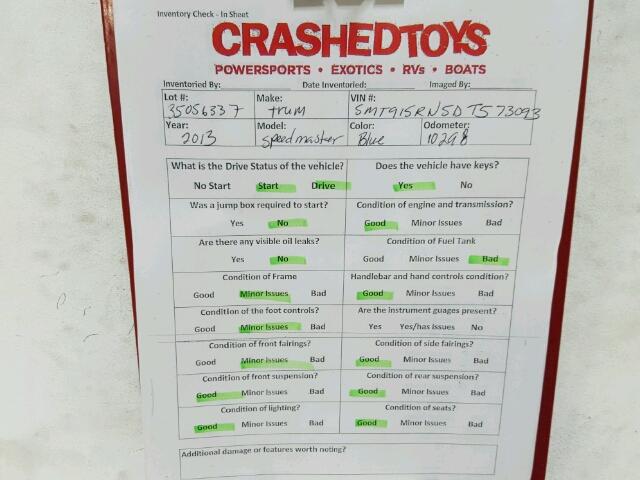 Inventory Check - In Sheet
CRASHEDTOYS
POWERSPORTS • EXOTICS • RVs • BOATS
Inventoried By: Date Inventoried: Imaged By:
Lot #: Make: VIN #:
35056337 trum SMT915RN5DT573093
Year: Model: Color: Odometer:
2013 Speedmaster Blue 10298
What is the Drive Status of the vehicle? Does the vehicle have keys?
No Start Start Drive Yes No
Was a jump box required to start? Condition of engine and transmission?
Yes No Good Minor Issues Bad
Are there any visible oil leaks? Condition of Fuel Tank
Yes No Good Minor Issues Bad
Condition of Frame Handlebar and hand controls condition?
Good Minor Issues Bad Good Minor Issues Bad
Condition of the foot controls? Are the instrument guages present?
Good Minor Issues Bad Yes Yes/has Issues No
Condition of front fairings? Condition of side fairings?
Good Minor Issues Bad Good Minor Issues Bad
Condition of front suspension? Condition of rear suspension?
Good Minor Issues Bad Good Minor Issues Bad
Condition of lighting? Condition of seats?
Good Minor Issues Bad Good Minor Issues Bad
Additional damage or features worth noting?